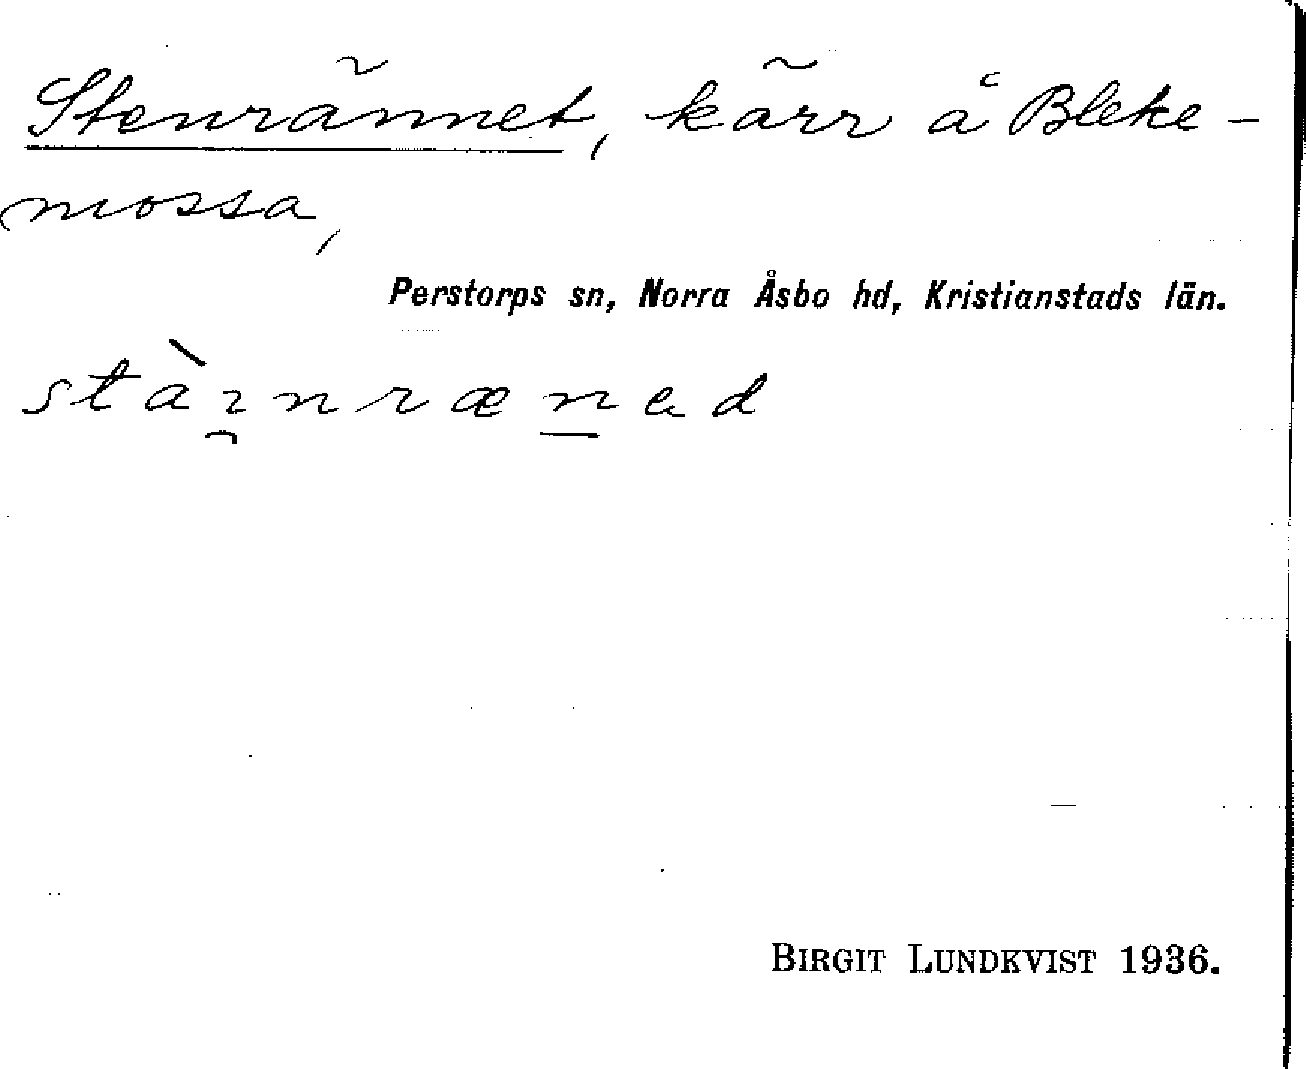 Stenrännet, kärr å Bleke-
mossa,
Perstorps sn, Norra Åsbo hd, Kristianstads län.
BIRGIT LUNDKVIST 1936.